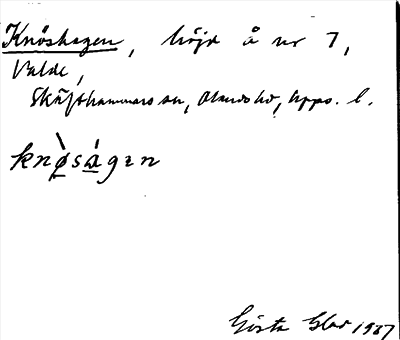 Knöshagen, höjd å nr 7,
Valde,
Skäfthammars sn, Olands hd, Upps. l.
knø̀ságen
Gösta Glad 1937